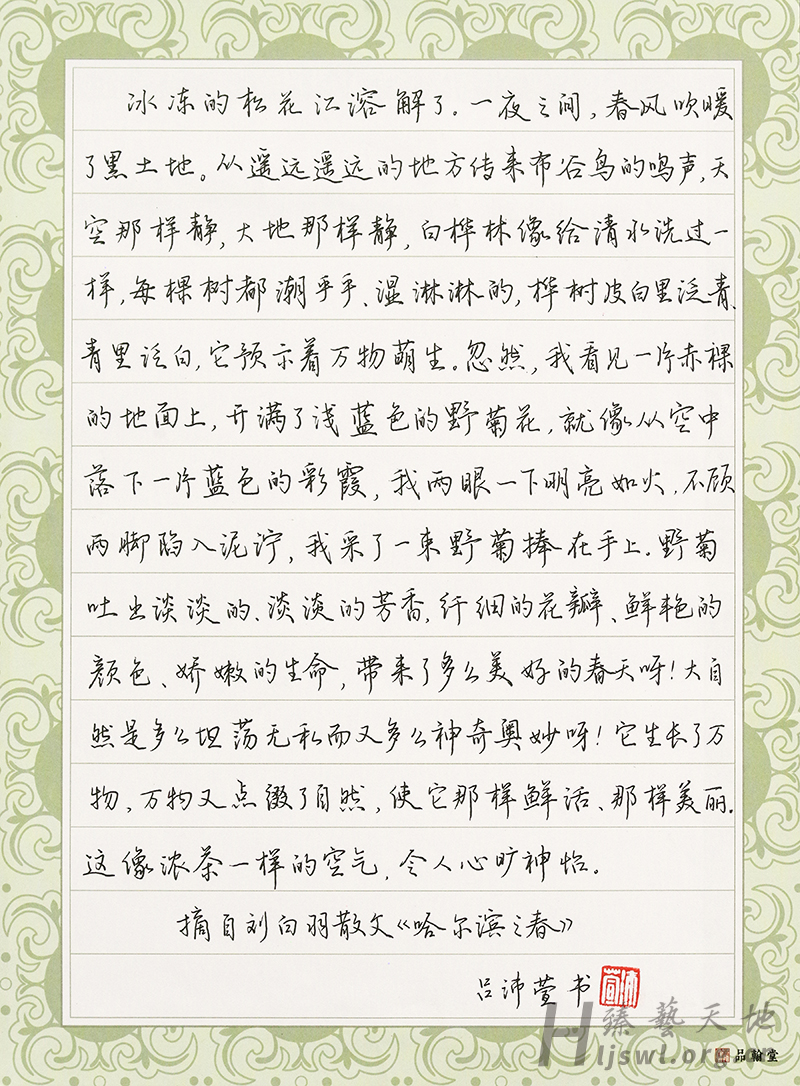 冰冻的松花江溶解了。一夜之间,春风吹暖
了黑土地。从遥远遥远的地方传来布谷鸟的鸣声,天
空那样静,大地那样静,白桦林像给清水洗过一
样,每棵树都潮乎乎、湿淋淋的,桦树皮白里泛青、
青里泛白,它预示着万物萌生。忽然,我看见一片赤裸
的地面上,开满了浅蓝色的野菊花,就像从空中
落下一片蓝色的彩霞,我两眼一下明亮如火,不顾
两脚陷入泥泞,我采了一束野菊捧在手上.野菊
吐出淡淡的、淡淡的芳香,纤细的花瓣、鲜艳的
颜色、娇嫩的生命,带来了多么美好的春天呀!大自
然是多么坦荡无私而又多么神奇奥妙呀!它生长了万
物,万物又点缀了自然,使它那样鲜活、那样美丽.
这像浓茶一样的空气,令人心旷神怡。
摘自刘白羽散文《哈尔滨之春》
吕沛萱书
臻藝天地
Hljswl.org.cn
品翰堂